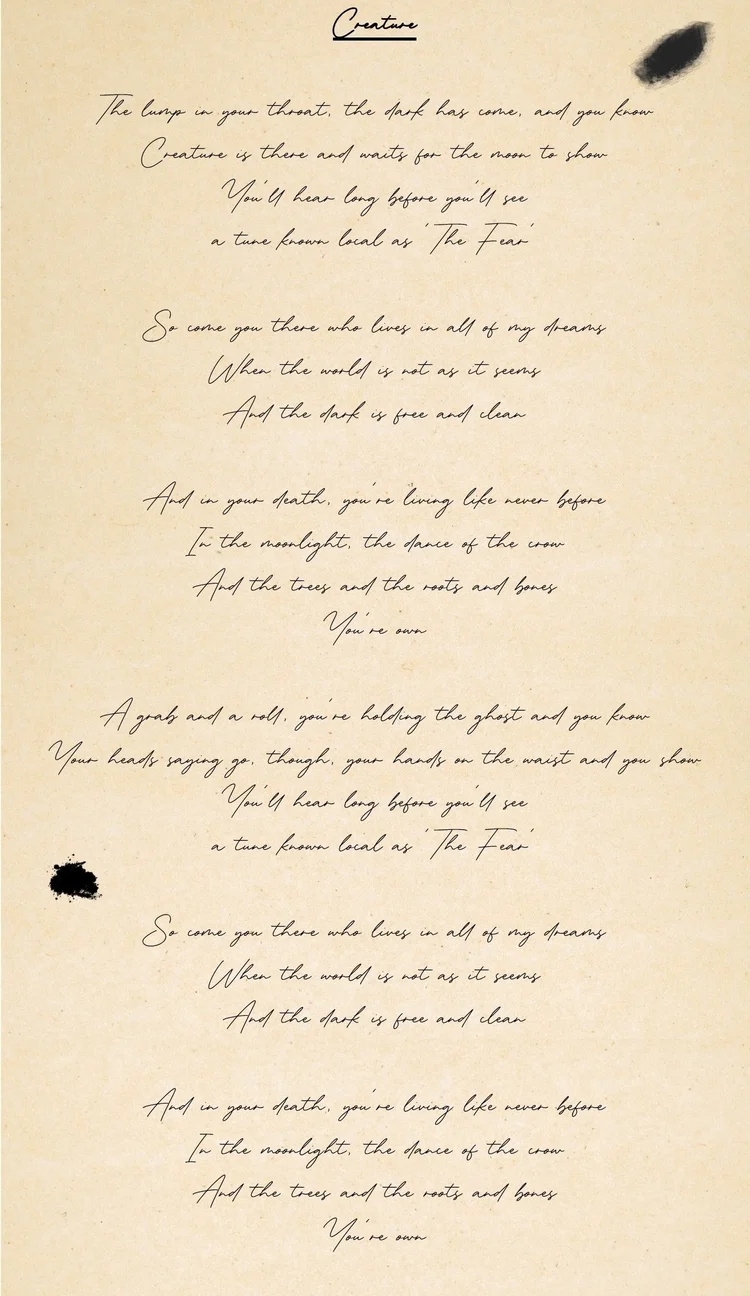 Creature
The lump in your throat, the dark has come, and you know
Creature is there and waits for the moon to show
You'll hear long before you'll see
a tune known local as 'The Fear'
So come you there who lives in all of my dreams
When the world is not as it seems
And the dark is free and clean
And in your death, you're living like never before
In the moonlight, the dance of the crow
And the trees and the roots and bones
You're own
A grab and a roll, you're holding the ghost and you know
Your heads saying go, though, your hands on the waist and you show
You'll hear long before you'll see
a tune known local as 'The Fear'
So come you there who lives in all of my dreams
When the world is not as it seems
And the dark is free and clean
And in your death, you're living like never before
In the moonlight, the dance of the crow
And the trees and the roots and bones
You're own